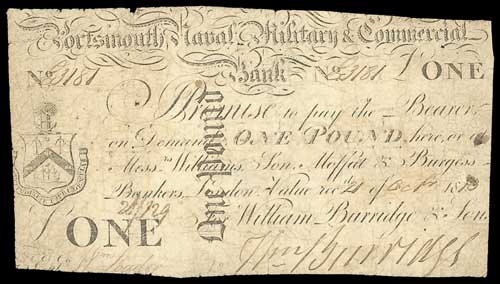 Portsmouth Naval Military & Commercial
Bank
No. 3181 No. 3181 ONE
Promise to pay the Bearer
on Demand ONE POUND, here, or at
Messrs. Williams, Son, Moffitt & Burgess
Bankers, London. Value recd. 21 of Octr. 18
William Burridge & Sons
One Pound
ONE
Wm Burridge